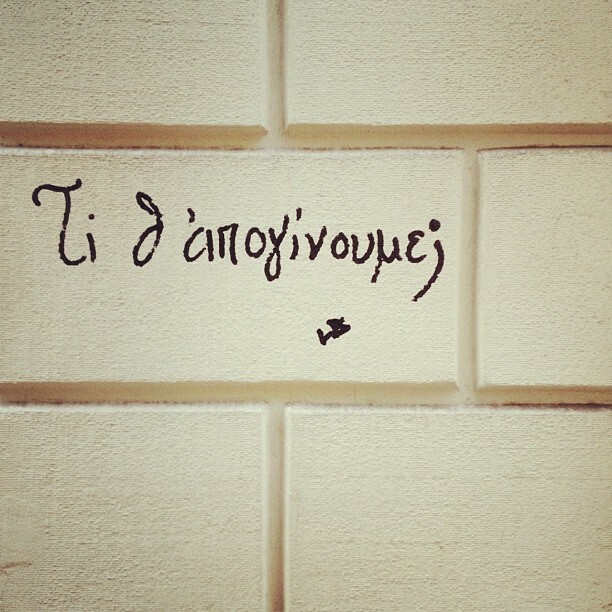 Τι θ ἀπογίνουμε;